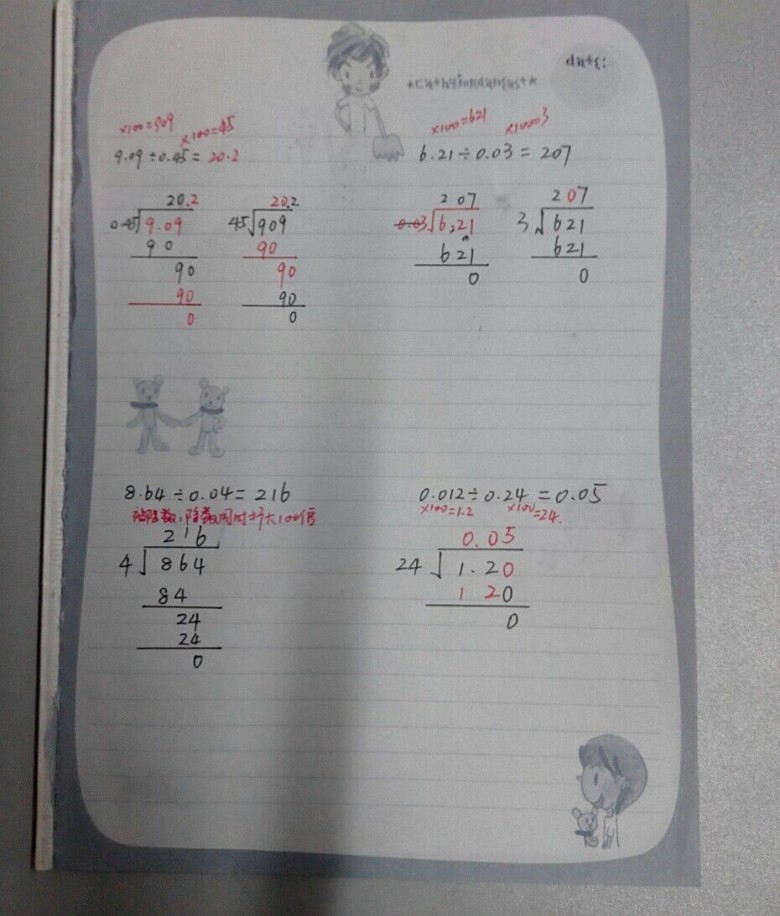 date:
×100=909
×100=45
9.09÷0.45=20.2
×100=621
×100=3
6.21÷0.03=207
20.2
0.45 9.09
90
90
90
0
20.2
45 909
90
90
90
0
207
0.03 6.21
621
0
207
3 621
621
0
8.64÷0.04=216
被除数,除数同时扩大100倍
216
4 864
84
24
24
0
0.012÷0.24=0.05
×100=1.2
×100=24.
0.05
24 1.20
120
0